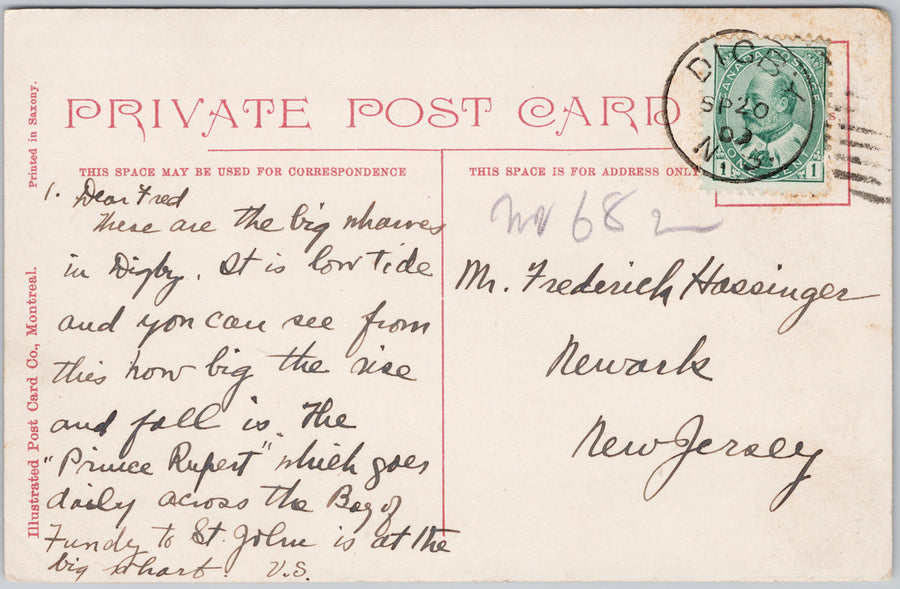 PRIVATE POST CARD
Printed in Saxony.
Illustrated Post Card Co., Montreal.
THIS SPACE MAY BE USED FOR CORRESPONDENCE
THIS SPACE IS FOR ADDRESS ONLY
DIGBY
SP 20
N.S.
CANADA POSTAGE
1 ONE CENT 1
1. Dear Fred
These are the big wharves
in Digby. It is low tide
and you can see from
this how big the rise
and fall is. The
"Prince Rupert" which goes
daily across the Bay of
Fundy to St. John is at the
big wharf. V.S.
68
Mr. Frederick Hassinger
Newark
New Jersey